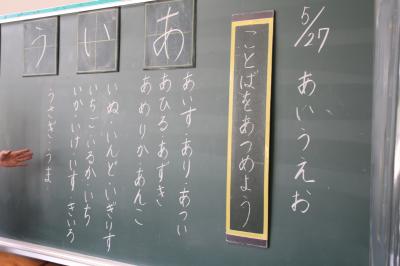 5/27 あいうえお
ことばをあつめよう
あ
あいす・あり・あつい
あひる・あずき
あめりか・あんこ
い
いぬ・いんど・いぎりす
いちご・いるか・いち
いか・いけ・いす きいろ
う
うさぎ・うま